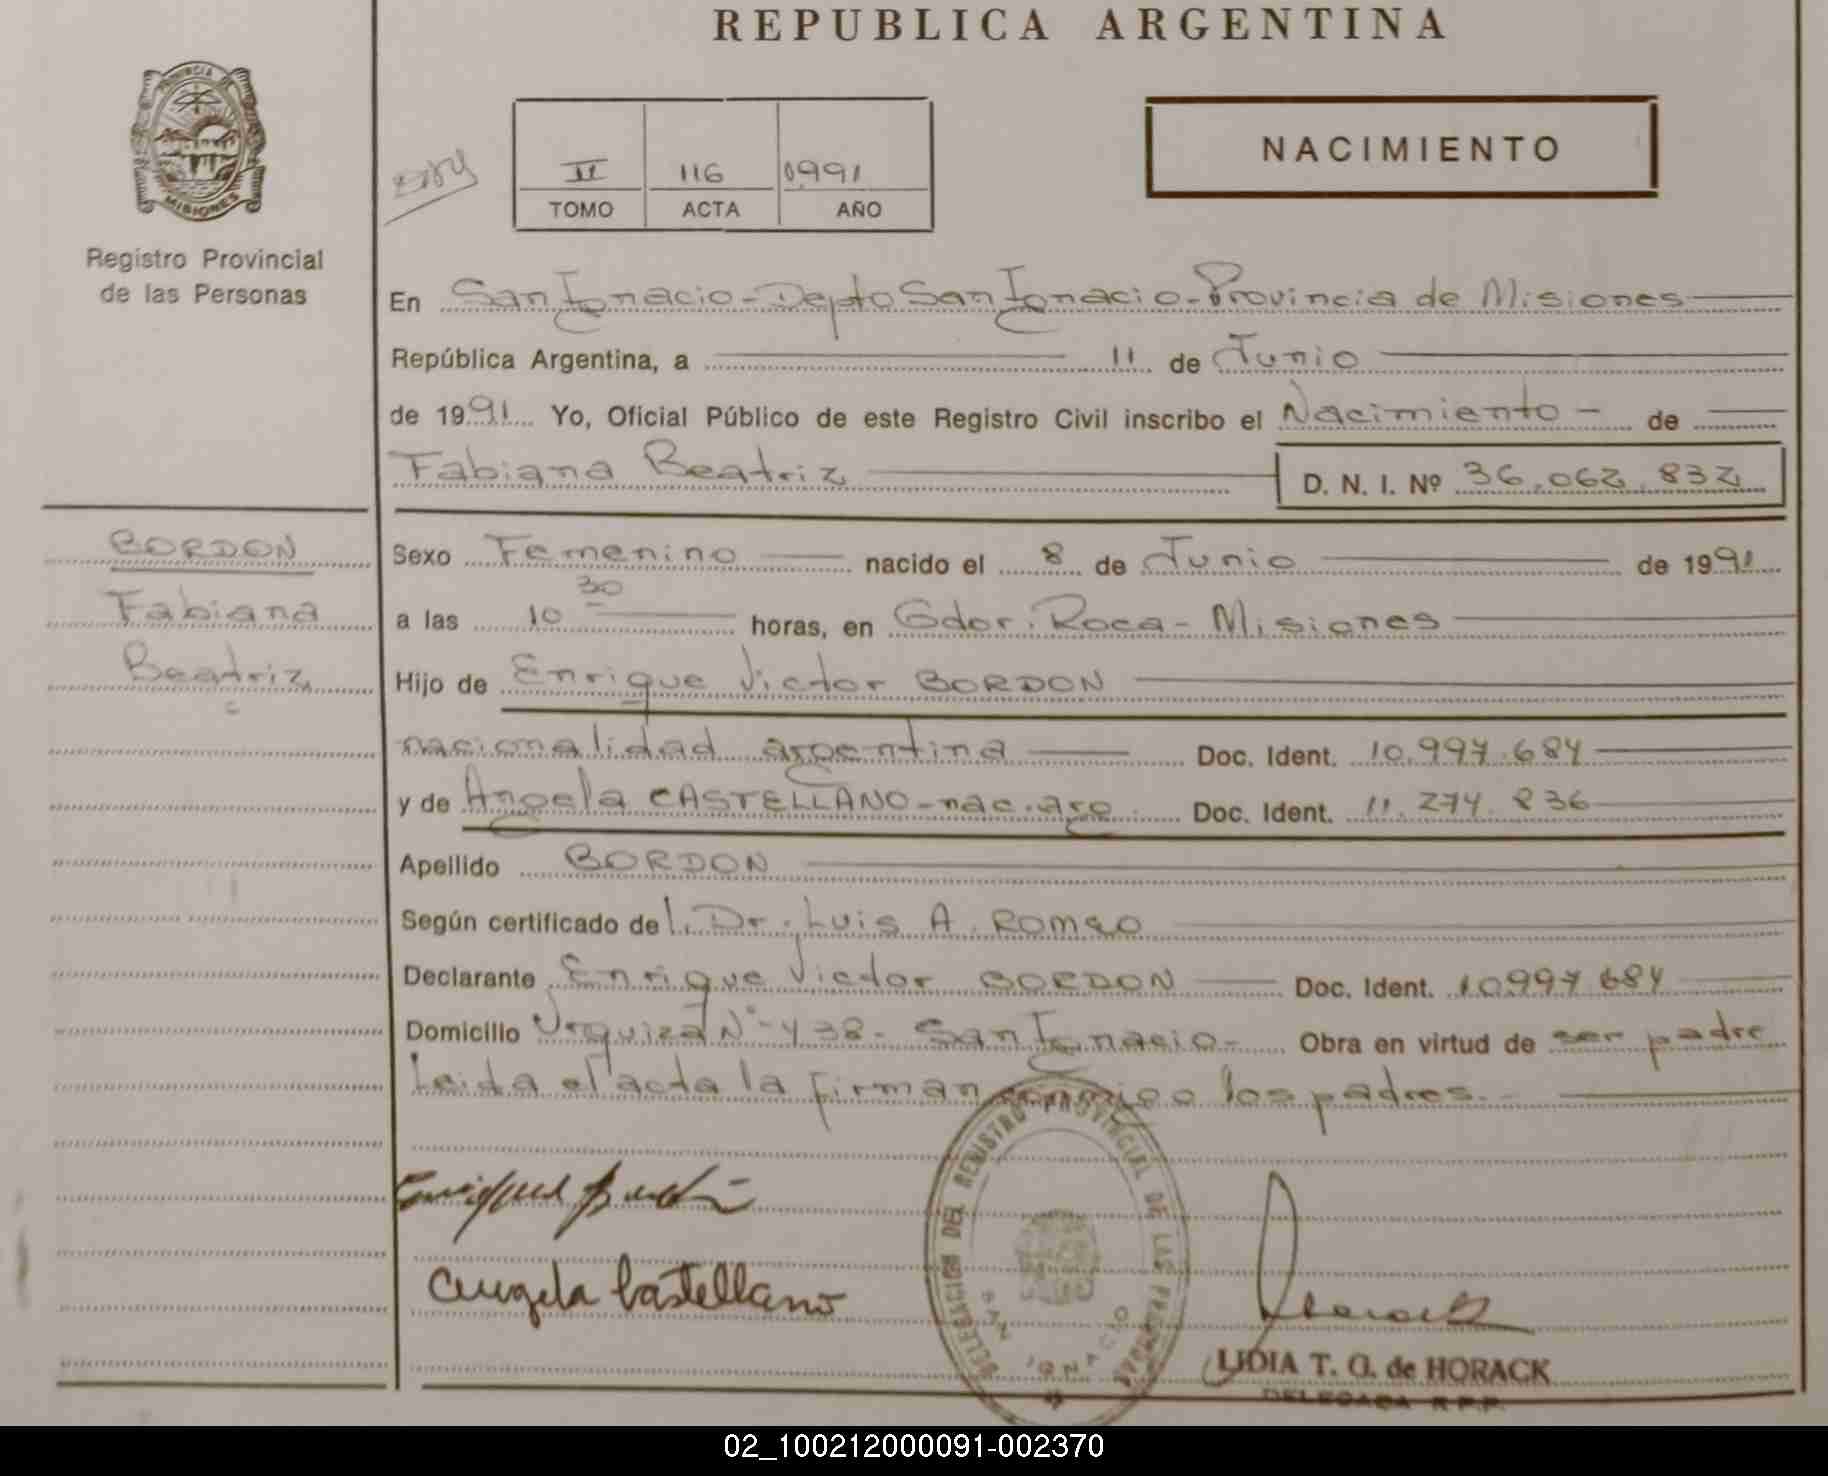 REPUBLICA ARGENTINA
PROVINCIA DE
MISIONES
Registro Provincial
de las Personas
II 116 1991
TOMO ACTA AÑO
NACIMIENTO
En San Ignacio-Depto San Ignacio-Provincia de Misiones
República Argentina, a 11 de Junio
de 1991 Yo, Oficial Público de este Registro Civil inscribo el Nacimiento - de
Fabiana Beatriz D. N. I. Nº 36.062.832
BORDON
Fabiana
Beatriz
Sexo Femenino nacido el 8 de Junio de 1991
a las 10 30 horas, en Gdor. Roca - Misiones
Hijo de Enrique Victor BORDON
nacionalidad argentina Doc. Ident. 10.997.684
y de Angela CASTELLANO-nac.arg. Doc. Ident. 11.274.836
Apellido BORDON
Según certificado del. Dr. Luis A. Romeo
Declarante Enrique Victor BORDON Doc. Ident. 10997684
Domicilio Urquiza Nº-438- San Ignacio- Obra en virtud de ser padre
Leida el acta la firman conmigo los padres.-
Enrique Bordon
Angela Castellano
DELEGACION DEL REGISTRO PROVINCIAL DE LAS PERSONAS
SAN IGNACIO
Horack
LIDIA T. G. de HORACK
DELEGADA R.P.P.
02_100212000091-002370